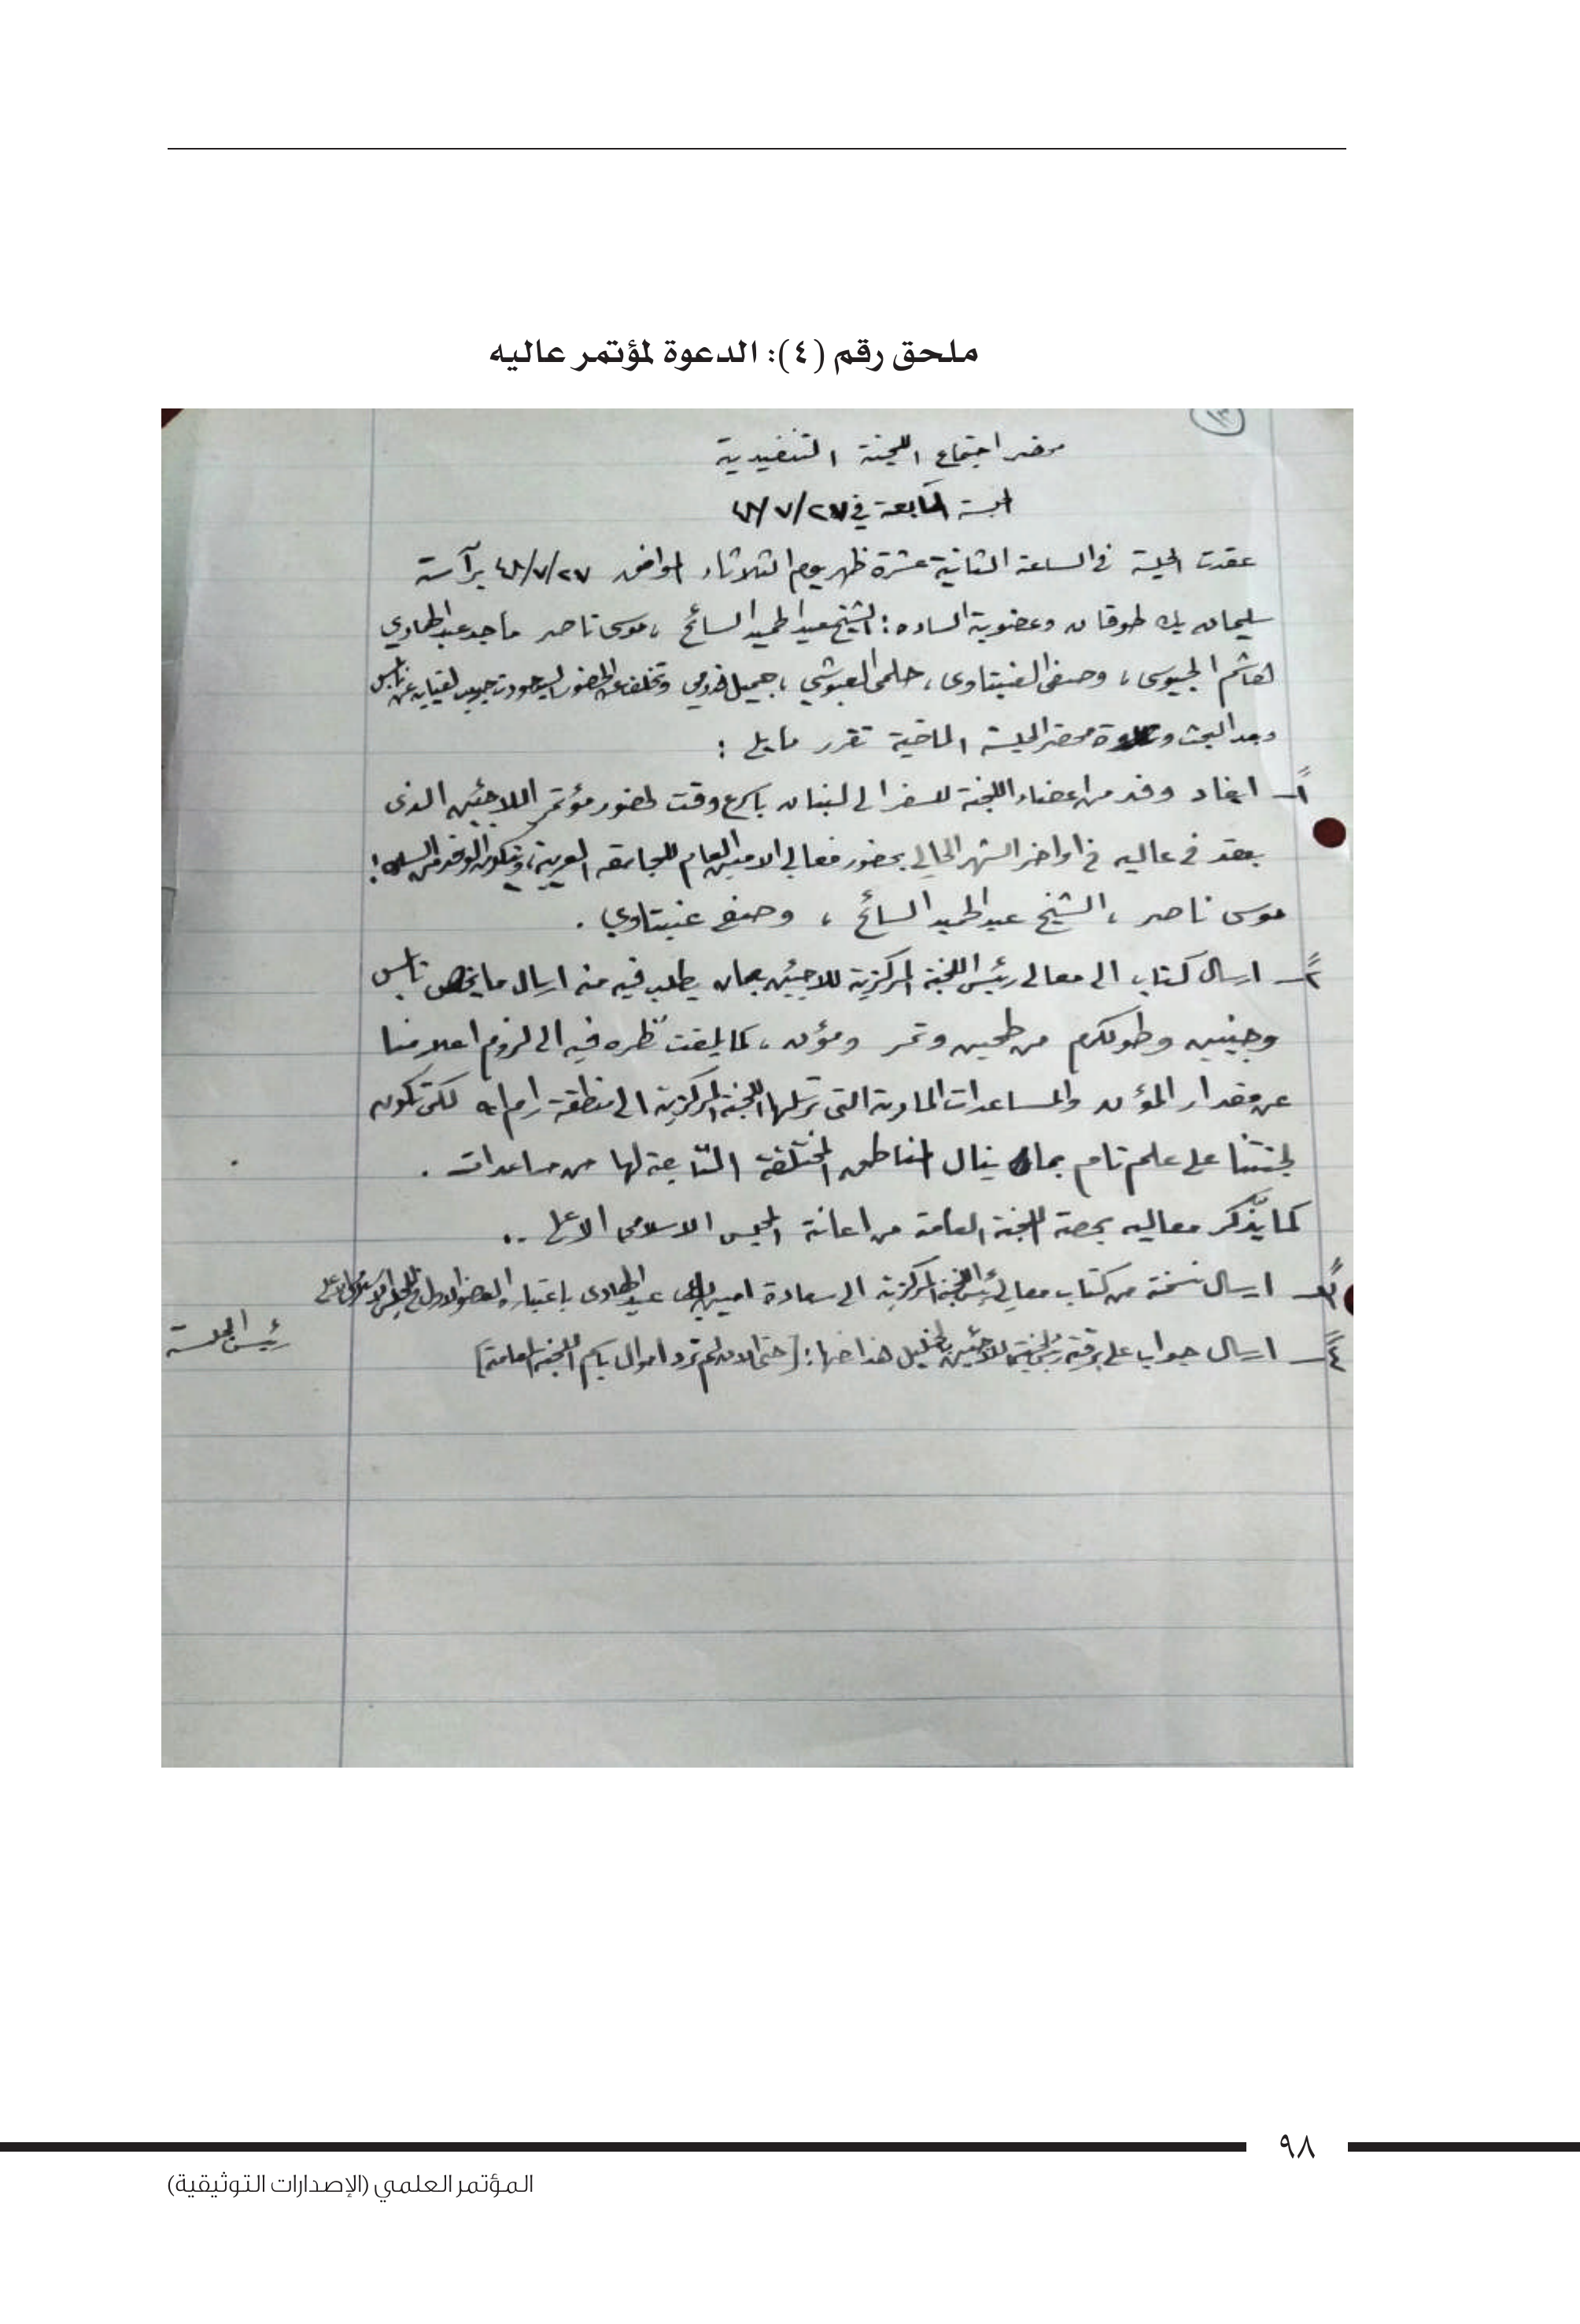 ملحق رقم (٤): الدعوة لمؤتمر عاليه
١٣
محضر اجتماع اللجنة التنفيذية
الجلسة في ٤٨/٧/٢٧
عقدت الجلسة في الساعة الثانية عشرة ظهر يوم الثلاثاء الموافق ٤٨/٧/٢٧ برآسة
سليمان بك طوقان وعضوية الساده: الشيخ عبد الحميد السائح ، موسى ناصر ماجد عبد الهادي
هاشم الجيوسي، وصفي العنبتاوى، حلمي العبوشي ، جميل وتخلف عن الحضور السيد جودت لغيابه عن نابلس
وبعد البحث وتلاوة محضر الجلسة الماضية تقرر ما يلي :
١ـ ايفاد وفد من اعضاء اللجنة للسفر الى لبنان باسرع وقت لحضور مؤتمر اللاجئين الذى
يعقد في عاليه في اواخر الشهر الحالي بحضور معالي الامين العام للجامعة العربية، ويتكون الوفد من الساده:
موسى ناصر ، الشيخ عبد الحميد السائح ، وصفي عنبتاوي .
٢ـ ارسال كتاب الى معالي رئيس اللجنة المركزية للاجئين بعمان يطلب فيه منه ارسال ما يخص نابلس
وجينين وطولكرم من طحين وتمر ومؤن ، كما يلفت نظره فيه الى لزوم اعلامنا
عن مقدار المؤن والمساعدات المادية التي ترسلها اللجنة المركزية الى منطقة رام الله لكي تكون
لجنتنا على علم تام بما ينال المناطق المختلفة التابعة لها من مساعدات .
كما يذكر معاليه بحصة اللجنة العامة من اعانة المجلس الاسلامي الاعلى ..
٣ـ ارسال نسخة من كتاب معالي رئيس اللجنة المركزية الى سعادة امين بك عبد الهادى باعتباره العضو الاول في المجلس الاسلامي الاعلى
٤ـ ارسال جواب على برقية رئيس لجنة اللاجئين بالخليل هذا نصها: [حتى الان لم ترد اموال باسم اللجنة العامة]
رئيس الجلسة
٩٨
المؤتمر العلمي (الإصدارات التوثيقية)